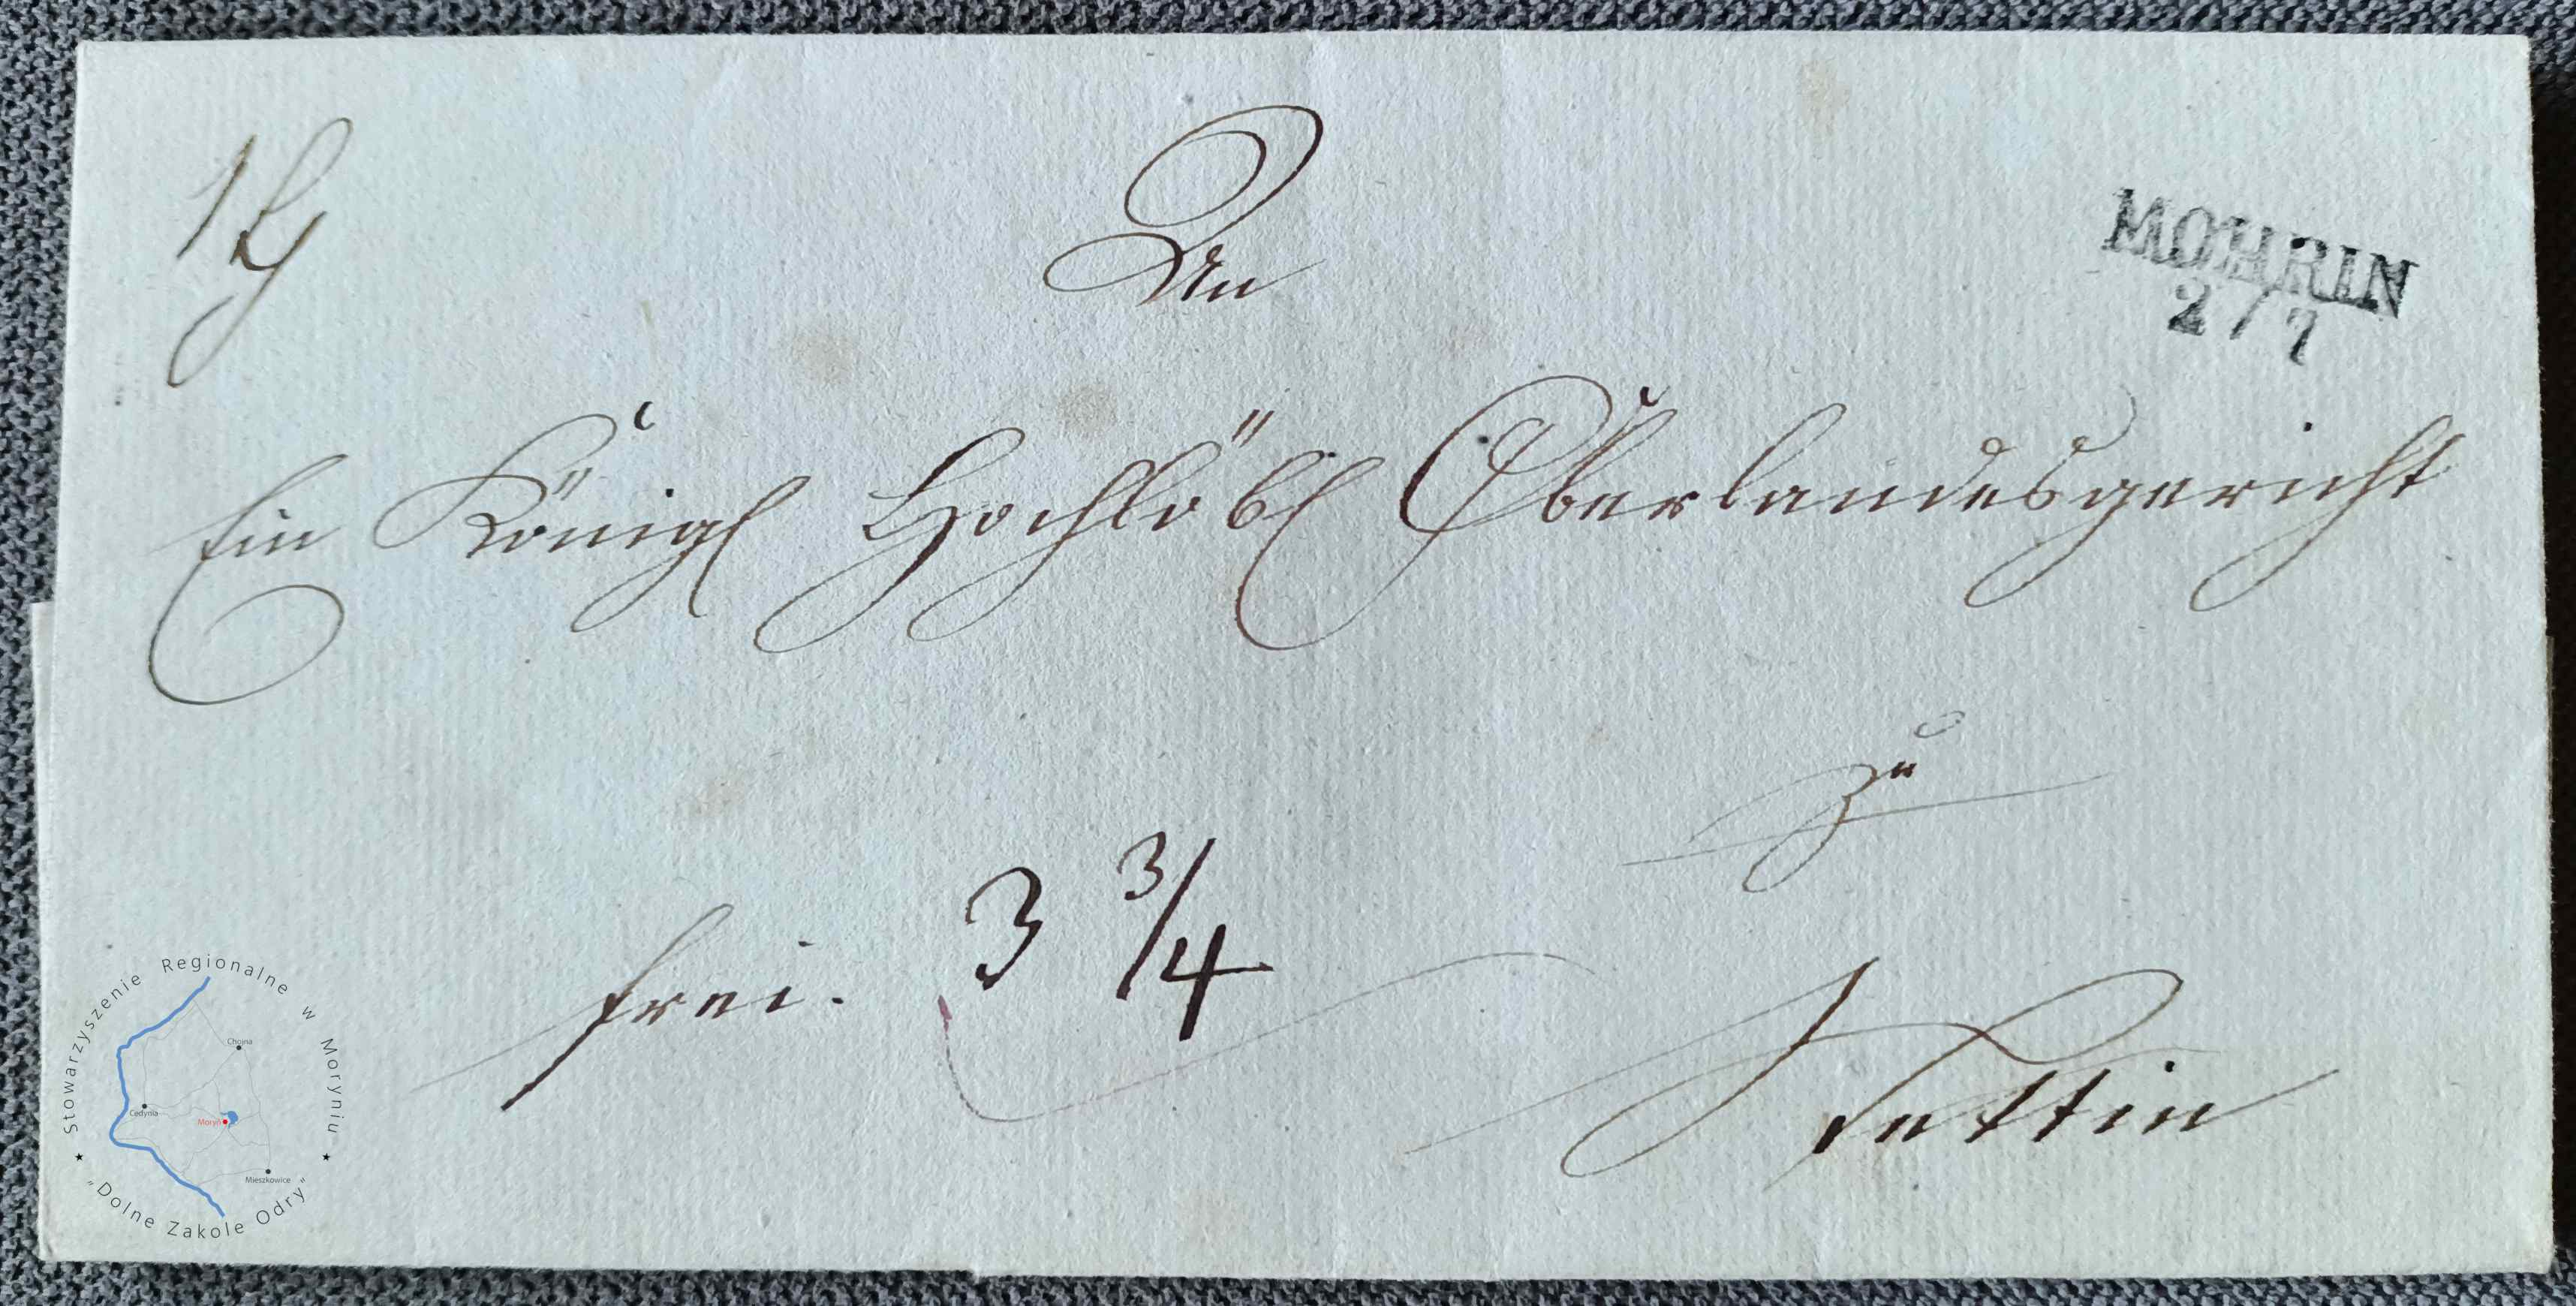 An
MOHRIN
2/7
Ein Königl Hochlöbl Oberlandesgericht
zu
frei. 3 3/4
Stettin
Stowarzyszenie Regionalne w Moryniu
"Dolne Zakole Odry"
Chojna
Cedynia
Moryń
Mieszkowice